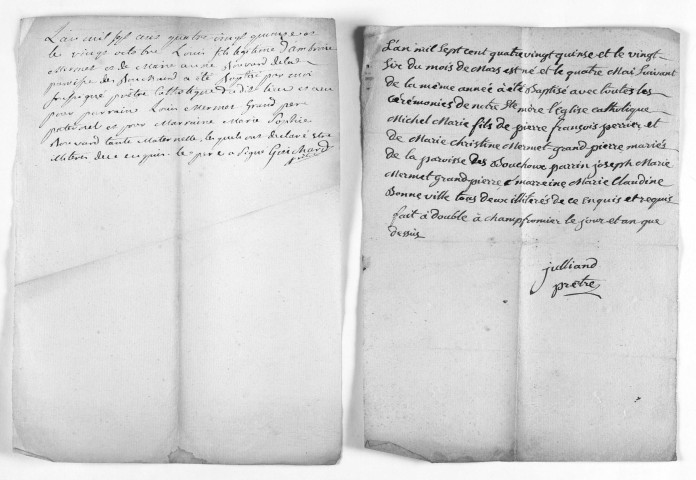 L'an mil sept cens quatre vingt quinse et
le vingt octobre Louis fils legitime d'ambroise
Mermet et de Marie Bouvard de la
paroisse des Bouchoux a été par moi
prêtre Catholique
pour parrain Louis Mermet Grand pere
paternel et pour Marraine Marie
Bouvard tante Maternelle, lesquels ont declaré etre
de ce enquis. le pere a signé Guichard
L'an mil Sept cent quatre vingt quinse et le vingt-
Six du mois de Mars est né et le quatre Mai Suivant
de la même année à été Baptisé avec toutes les
cérémonies de nôtre Ste mère l'Eglise catholique
Michel Marie fils de pierre françois perrier et
de Marie christine Mermet grand pierre mariés
de la paroisse des Bouchoux parrin joseph Marie
Mermet grand pierre & marreine Marie Claudine
Bonne ville tous deux illiterés de ce Enquis et requis
fait à double à champfromier le jour et an que
dessus
julliand
prêtre